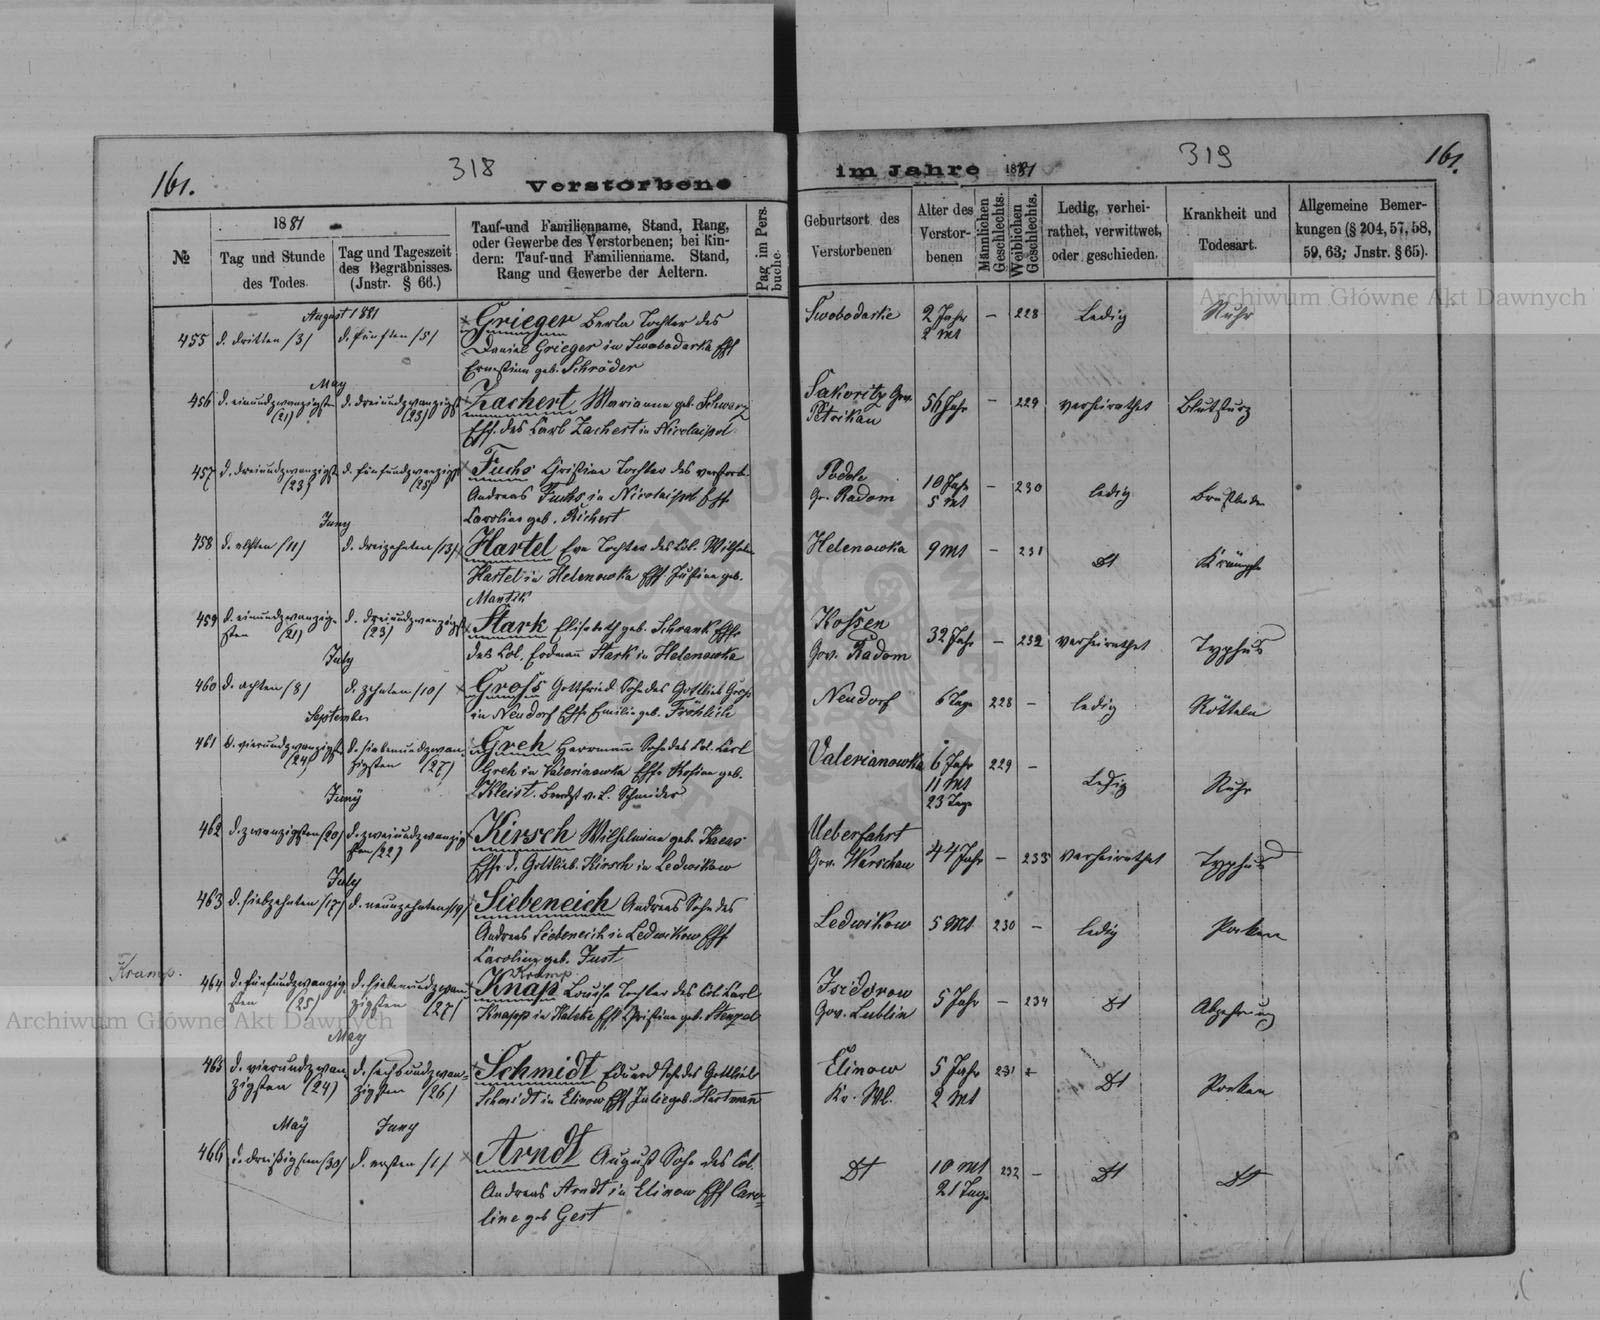 161.
318
Verstorbene
im Jahre 1881
319
161.
№
1881
Tag und Stunde
des Todes.
Tag und Tageszeit
des Begräbnisses.
(Instr. § 66.)
Tauf-und Familienname, Stand, Rang,
oder Gewerbe des Verstorbenen; bei Kin-
dern: Tauf-und Familienname. Stand,
Rang und Gewerbe der Aeltern.
Pag im Pers.
buche.
Geburtsort des
Verstorbenen
Alter des
Verstor-
benen
Männlichen
Geschlechts.
Weiblichen
Geschlechts.
Ledig, verhei-
rathet, verwittwet,
oder geschieden.
Krankheit und
Todesart.
Allgemeine Bemer-
kungen (§ 204, 57, 58,
59, 63; Instr. § 65).
Archiwum Główne Akt Dawnych
August 1881
455 d. dritten /3/ d. fünften /5/
Grieger Berta Tochter des
Daniel Grieger in Swobodarka Eff
Ernestine geb. Schröder
2 Jahr
2 Mt
– 228 Ledig Ruhr
May
456 d. einundzwanzigsten (21) d. dreiundzwanzigst (23)
Zachert Marianne geb. Schwarz
Eff. des Carl Zachert in Nicolaipol
Gov.
Petrikau
56 Jahr – 229 verheirathet Blutsturz
457 d. dreiundzwanzigst (23) d. fünfundzwanzigst (25)
Fuchs Christine Tochter des verstorb.
Andreas Fuchs in Nicolaipol Eff
Caroline geb. Richert
Podole
Gv. Radom
10 Jahr
5 Mt
– 230 ledig
Juny
458 d. elften /11/ d. dreizehnten /13/
Hartel Eva Tochter des Col. Wilhelm
Hartel in Helenowka Eff Justine geb.
Helenowka 9 Mt – 231 Dt Krämpfe
459 d. einundzwanzig-
sten (21) d. dreiundzwanzigst (23)
Stark Elisabeth geb. Schrank Effr
des Col. Erdmann Stark in Helenowka
Gov. Radom
32 Jahr – 232 verheirathet Typhus
July
460 d. achten /8/ d. zehnten /10/
Gross Gottfried Sohn des Gottlieb Gross
in Neudorf Effr Emilie geb. Fröhlich
Neudorf 6 Tage 228 – ledig Rötteln
September
461 d. vierundzwanzigst (24) d. siebenundzwan-
zigsten (27)
Greh Herrmann Sohn des Col. Carl
Greh in Valerianowka Effr Rosine geb.
Kleist. v. L. Schneider
Valerianowka 6 Jahr
11 Mt
23 Tage
229 – Ledig Ruhr
Juny
462 d. zwanzigsten /20/ d. zweiundzwanzig
sten /22/
Kirsch Wilhelmine geb.
Effr d. Gottlieb Kirsch in Ledwikow
Ueberfahrt
Gov. Warschau
44 Jahr – 233 verheirathet Typhus
July
463 d. siebzehnten /17/ d. neunzehnten /19/
Siebeneich Andreas Sohn des
Andreas Siebeneich in Ledwikow Eff
Caroline geb. Just
Ledwikow 5 Mt 230 – ledig Pocken
Kramp.
Kramp
464 d. fünfundzwanzig-
sten (25) d. siebenundzwan-
zigsten (27)
Knap Louise Tochter des Col. Carl
Knapp in Eff Christine geb. Stenzel
Isidorow
Gov. Lublin
5 Jahr – 234 Dt Abzehrung
Archiwum Główne Akt Dawnych
May
465 d. vierundzwan-
zigsten (24) d. sechsundzwan-
zigsten (26)
Schmidt Eduard Sohn des Gottlieb
Schmidt in Elinow Eff Julie geb. Hartmann
Elinow
Kr. Wl.
5 Jahr
2 Mt
231 – Dt Pocken
May Juny
466 d. dreißigsten /30/ d. ersten /1/
Arndt August Sohn des Col.
Andreas Arndt in Elinow Eff Caro-
line geb Gert
Dt 10 Mt
21 Tage
232 – Dt Dt